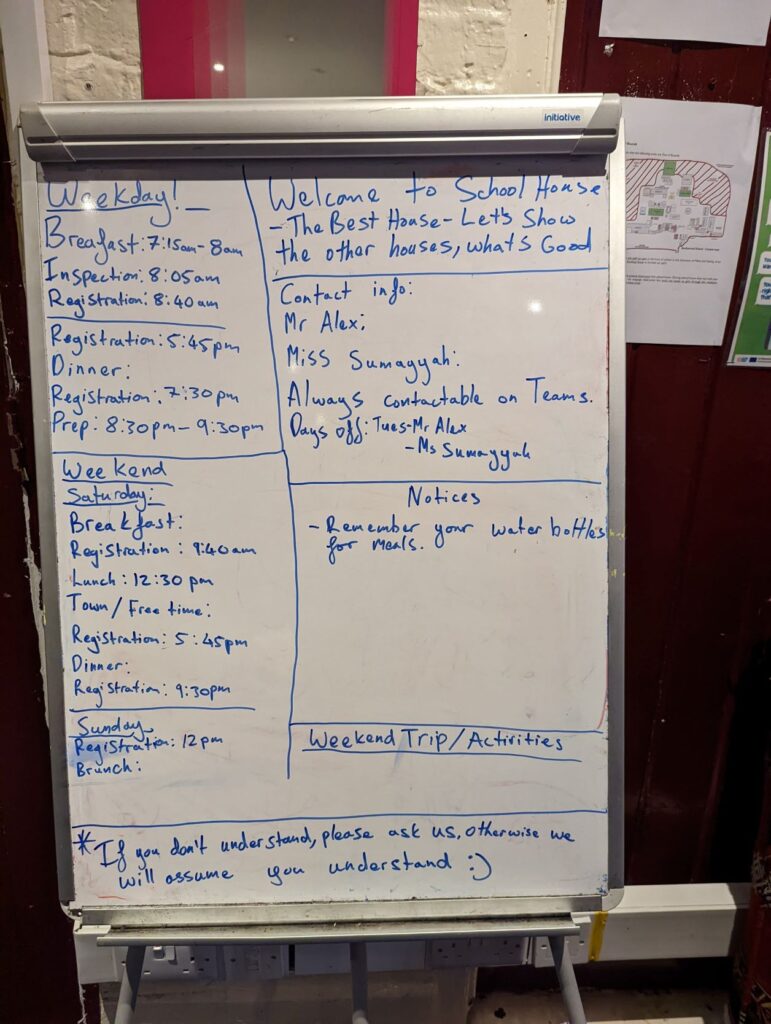 initiative
Weekday!
Breafast: 7:15am - 8am
Inspection: 8:05am
Registration: 8:40am
Registration: 5:45pm
Dinner:
Registration: 7:30pm
Prep: 8:30pm - 9:30pm
Weekend
Saturday:
Breakfast:
Registration: 9:40am
Lunch: 12:30pm
Town/Free time:
Registration: 5:45pm
Dinner:
Registration: 9:30pm
Sunday
Registration: 12pm
Brunch:
Welcome to School House
- The Best House - Let's Show
the other houses, what's Good
Contact info:
Mr Alex:
Miss Sumayyah:
Always contactable on Teams.
Days off: Tues - Mr Alex
- Ms Sumayyah
Notices
- Remember your water bottles
for meals.
Weekend Trip/Activities
* If you don't understand, please ask us, otherwise we
will assume you understand :)